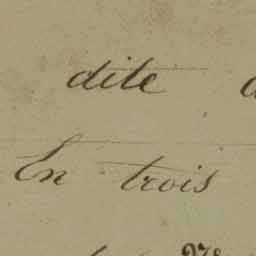 dite
En trois